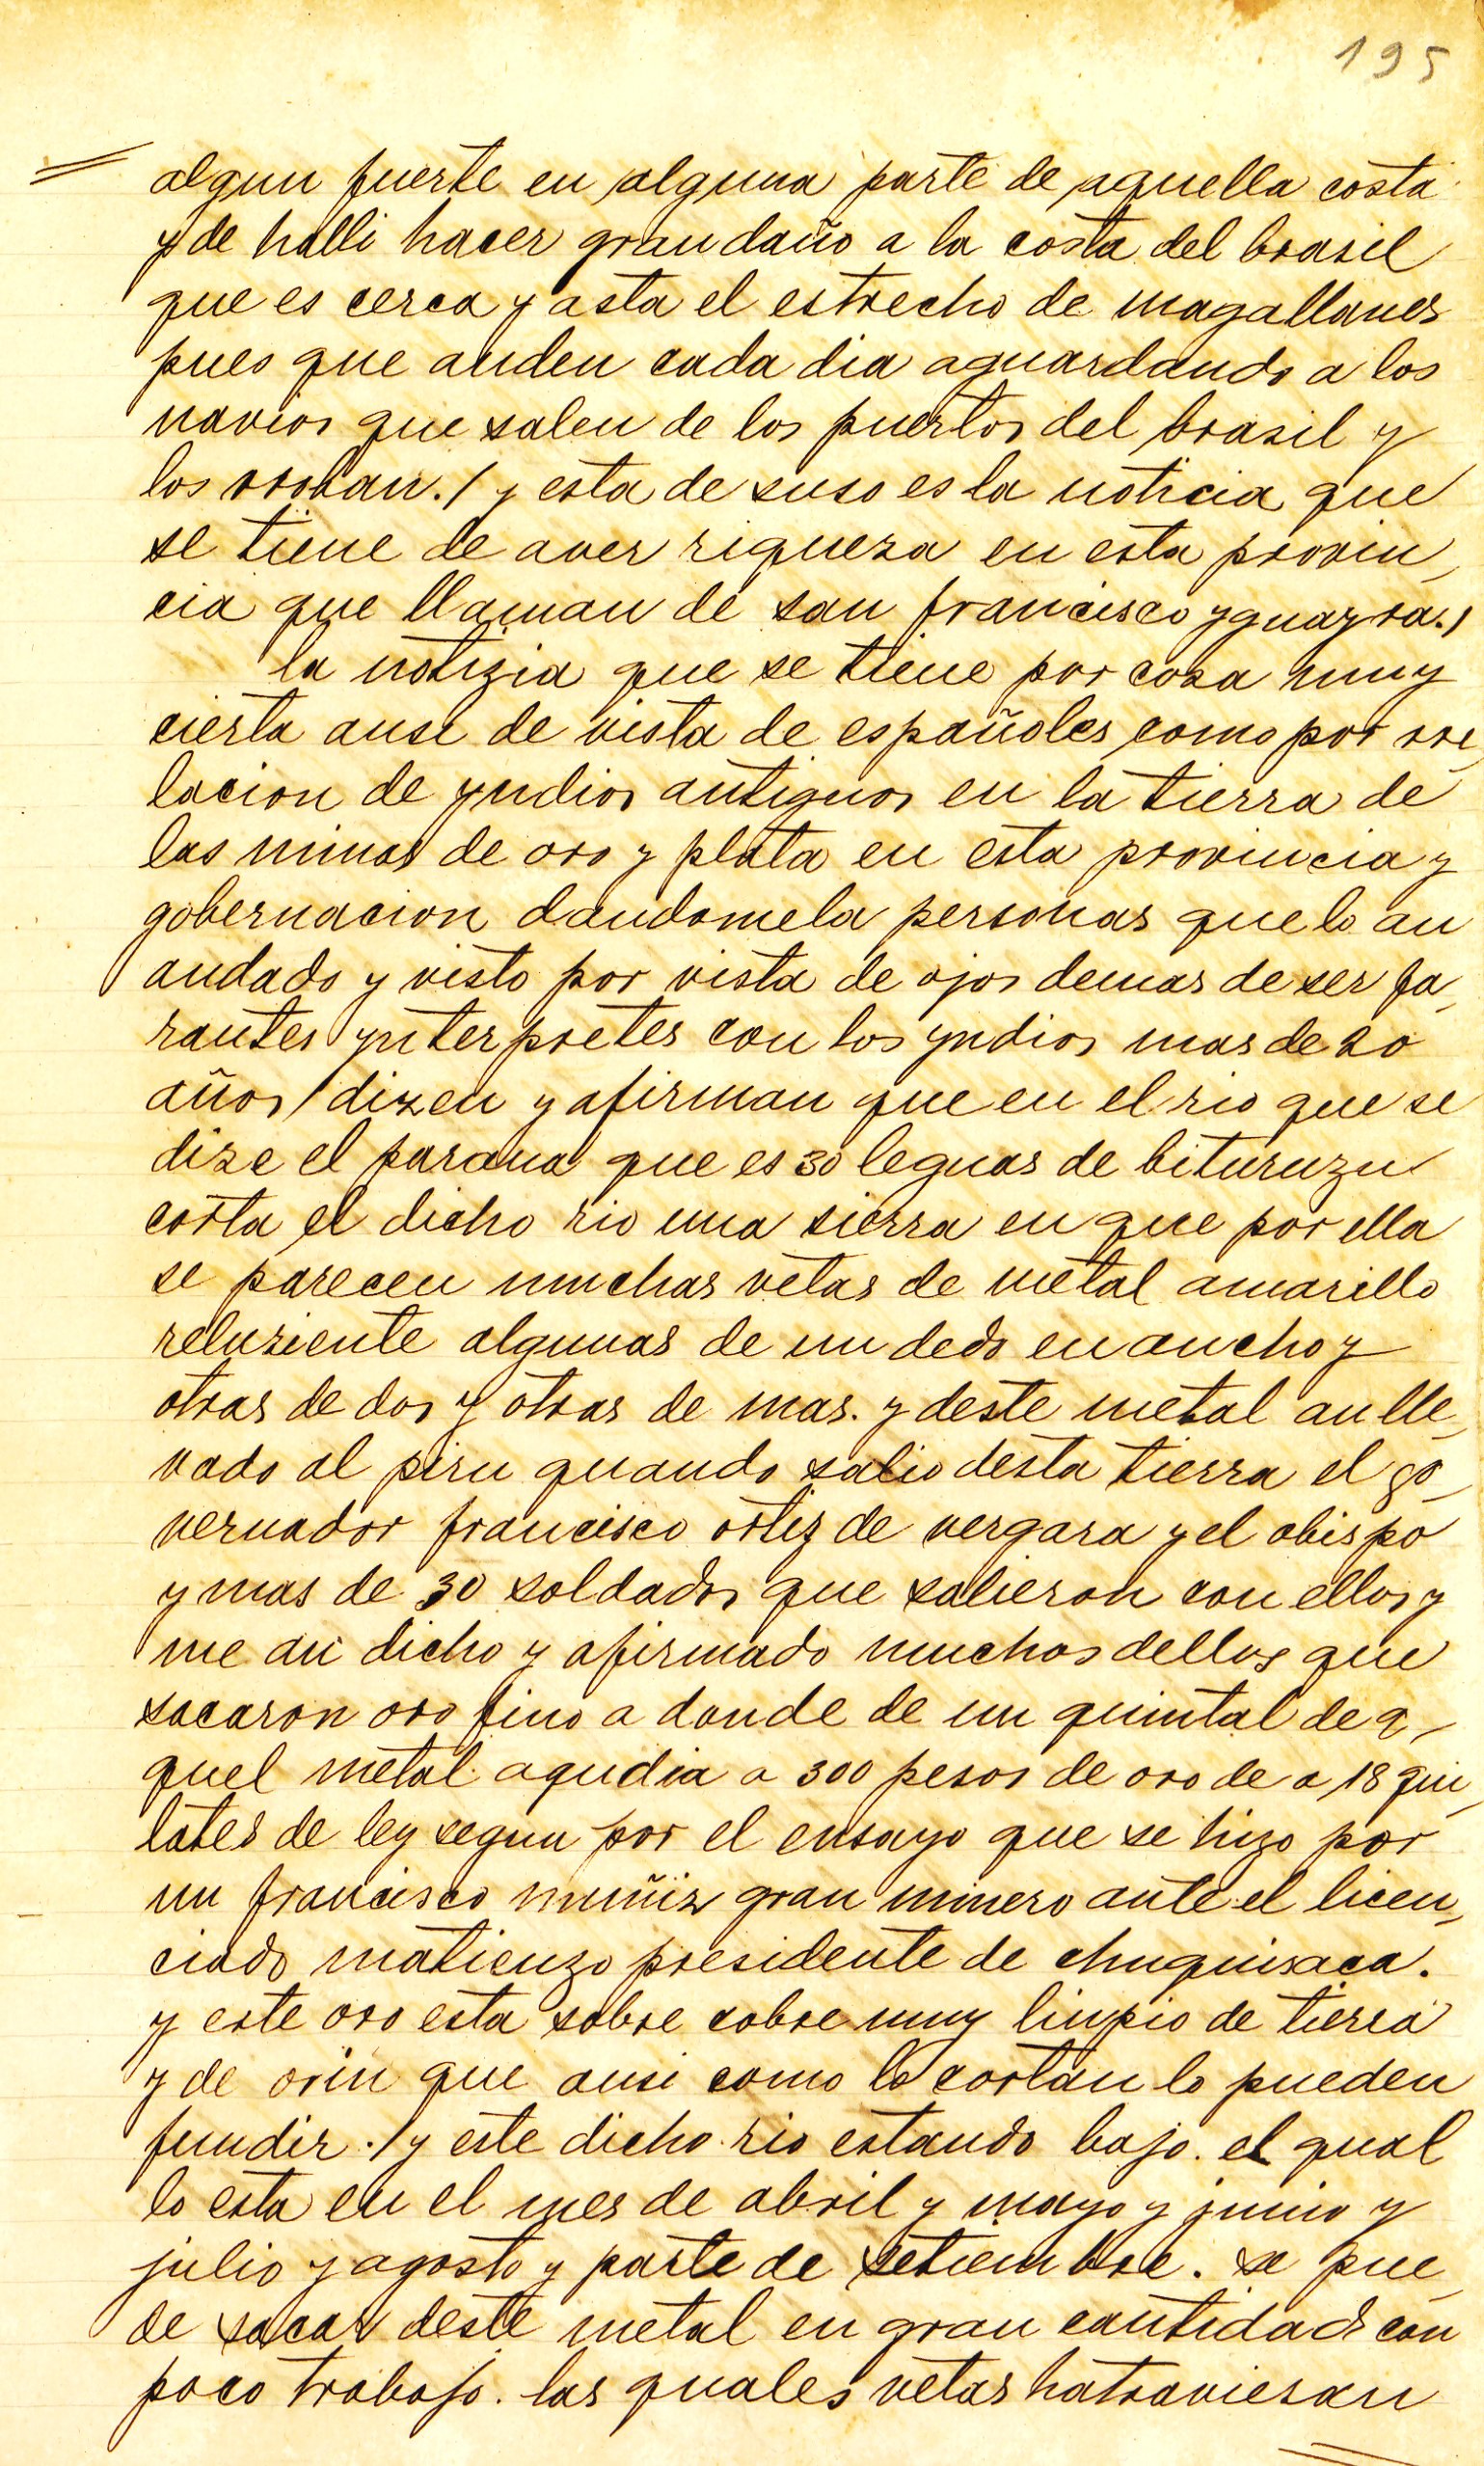 195
algun fuerte en alguna parte de aquella costa
y de halli hacer gran daño a la costa del brasil
que es cerca y asta el estrecho de magallanes
pues que anden cada dia aguardando a los
navios que salen de los puertos del brasil y
los rroban./ y esta de suso es la noticia que
se tiene de aver riqueza en esta provin_
cia que llaman de san francisco yguayra./
la notizia que se tiene por cosa muy
cierta ansi de vista de españoles como por rre_
lacion de yndios antiguos en la tierra de
las minas de oro y plata en esta provincia y
gobernacion dandomela personas que lo an
andado y visto por vista de ojos demas de ser fa_
rautes ynterpretes con los yndios mas de 20
años/ dizen y afirman que en el rio que se
dize el parana que es 30 leguas de bituruzu
corta el dicho rio una sierra en que por ella
se parecen muchas vetas de metal amarillo
reluziente algunas de un dedo en ancho y
otras de dos y otras de mas. y deste metal an lle_
vado al piru quando salio desta tierra el go_
vernador francisco ortiz de vergara y el obispo
y mas de 30 soldados que salieron con ellos y
me an dicho y afirmado muchos dellos que
sacaron oro fino a donde de un quintal de a_
quel metal agudia a 300 pesos de oro de a 18 qui_
lates de ley segun por el ensayo que se hizo por
un francisco muñiz gran minero ante el licen_
ciado matienzo presidente de chuquisaca.
y este oro esta sobre cobre muy linpio de tierra
y de orin que ansi como lo cortan lo pueden
fundir ./ y este dicho rio estando bajo. el qual
lo esta en el mes de abril y mayo y junio y
julio y agosto y parte de setiembre. se pue_
de sacar deste metal en gran cantidad con
poco trabajo. las quales vetas hatraviesan